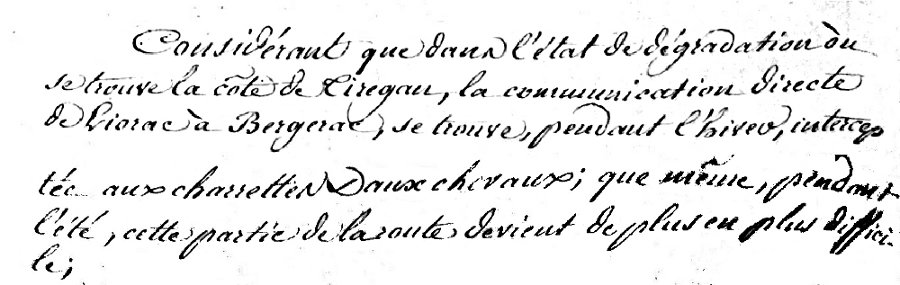 Considérant que dans l'état de dégradation où
se trouve la côte de Tiregan, la communication directe
de Liorac à Bergerac, se trouve, pendant l'hiver, intercep
tée aux charrettes & aux chevaux; que même, pendant
l'été, cette partie de la route devient de plus en plus diffici-
le;